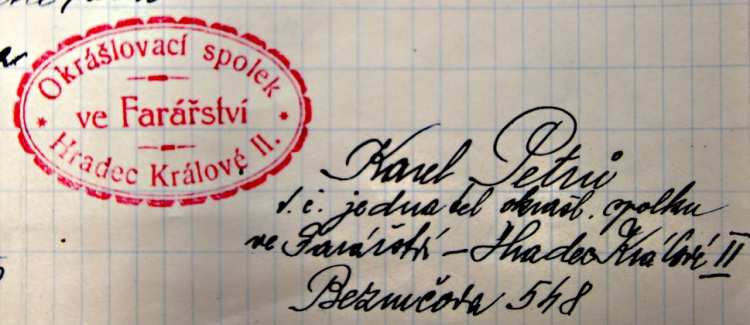 Okrášlovací spolek
ve Farářství
Hradec Králové II.
Karel Petrů
t. č. jednatel okrašl. spolku
ve Farářství – Hradec Králové II
548